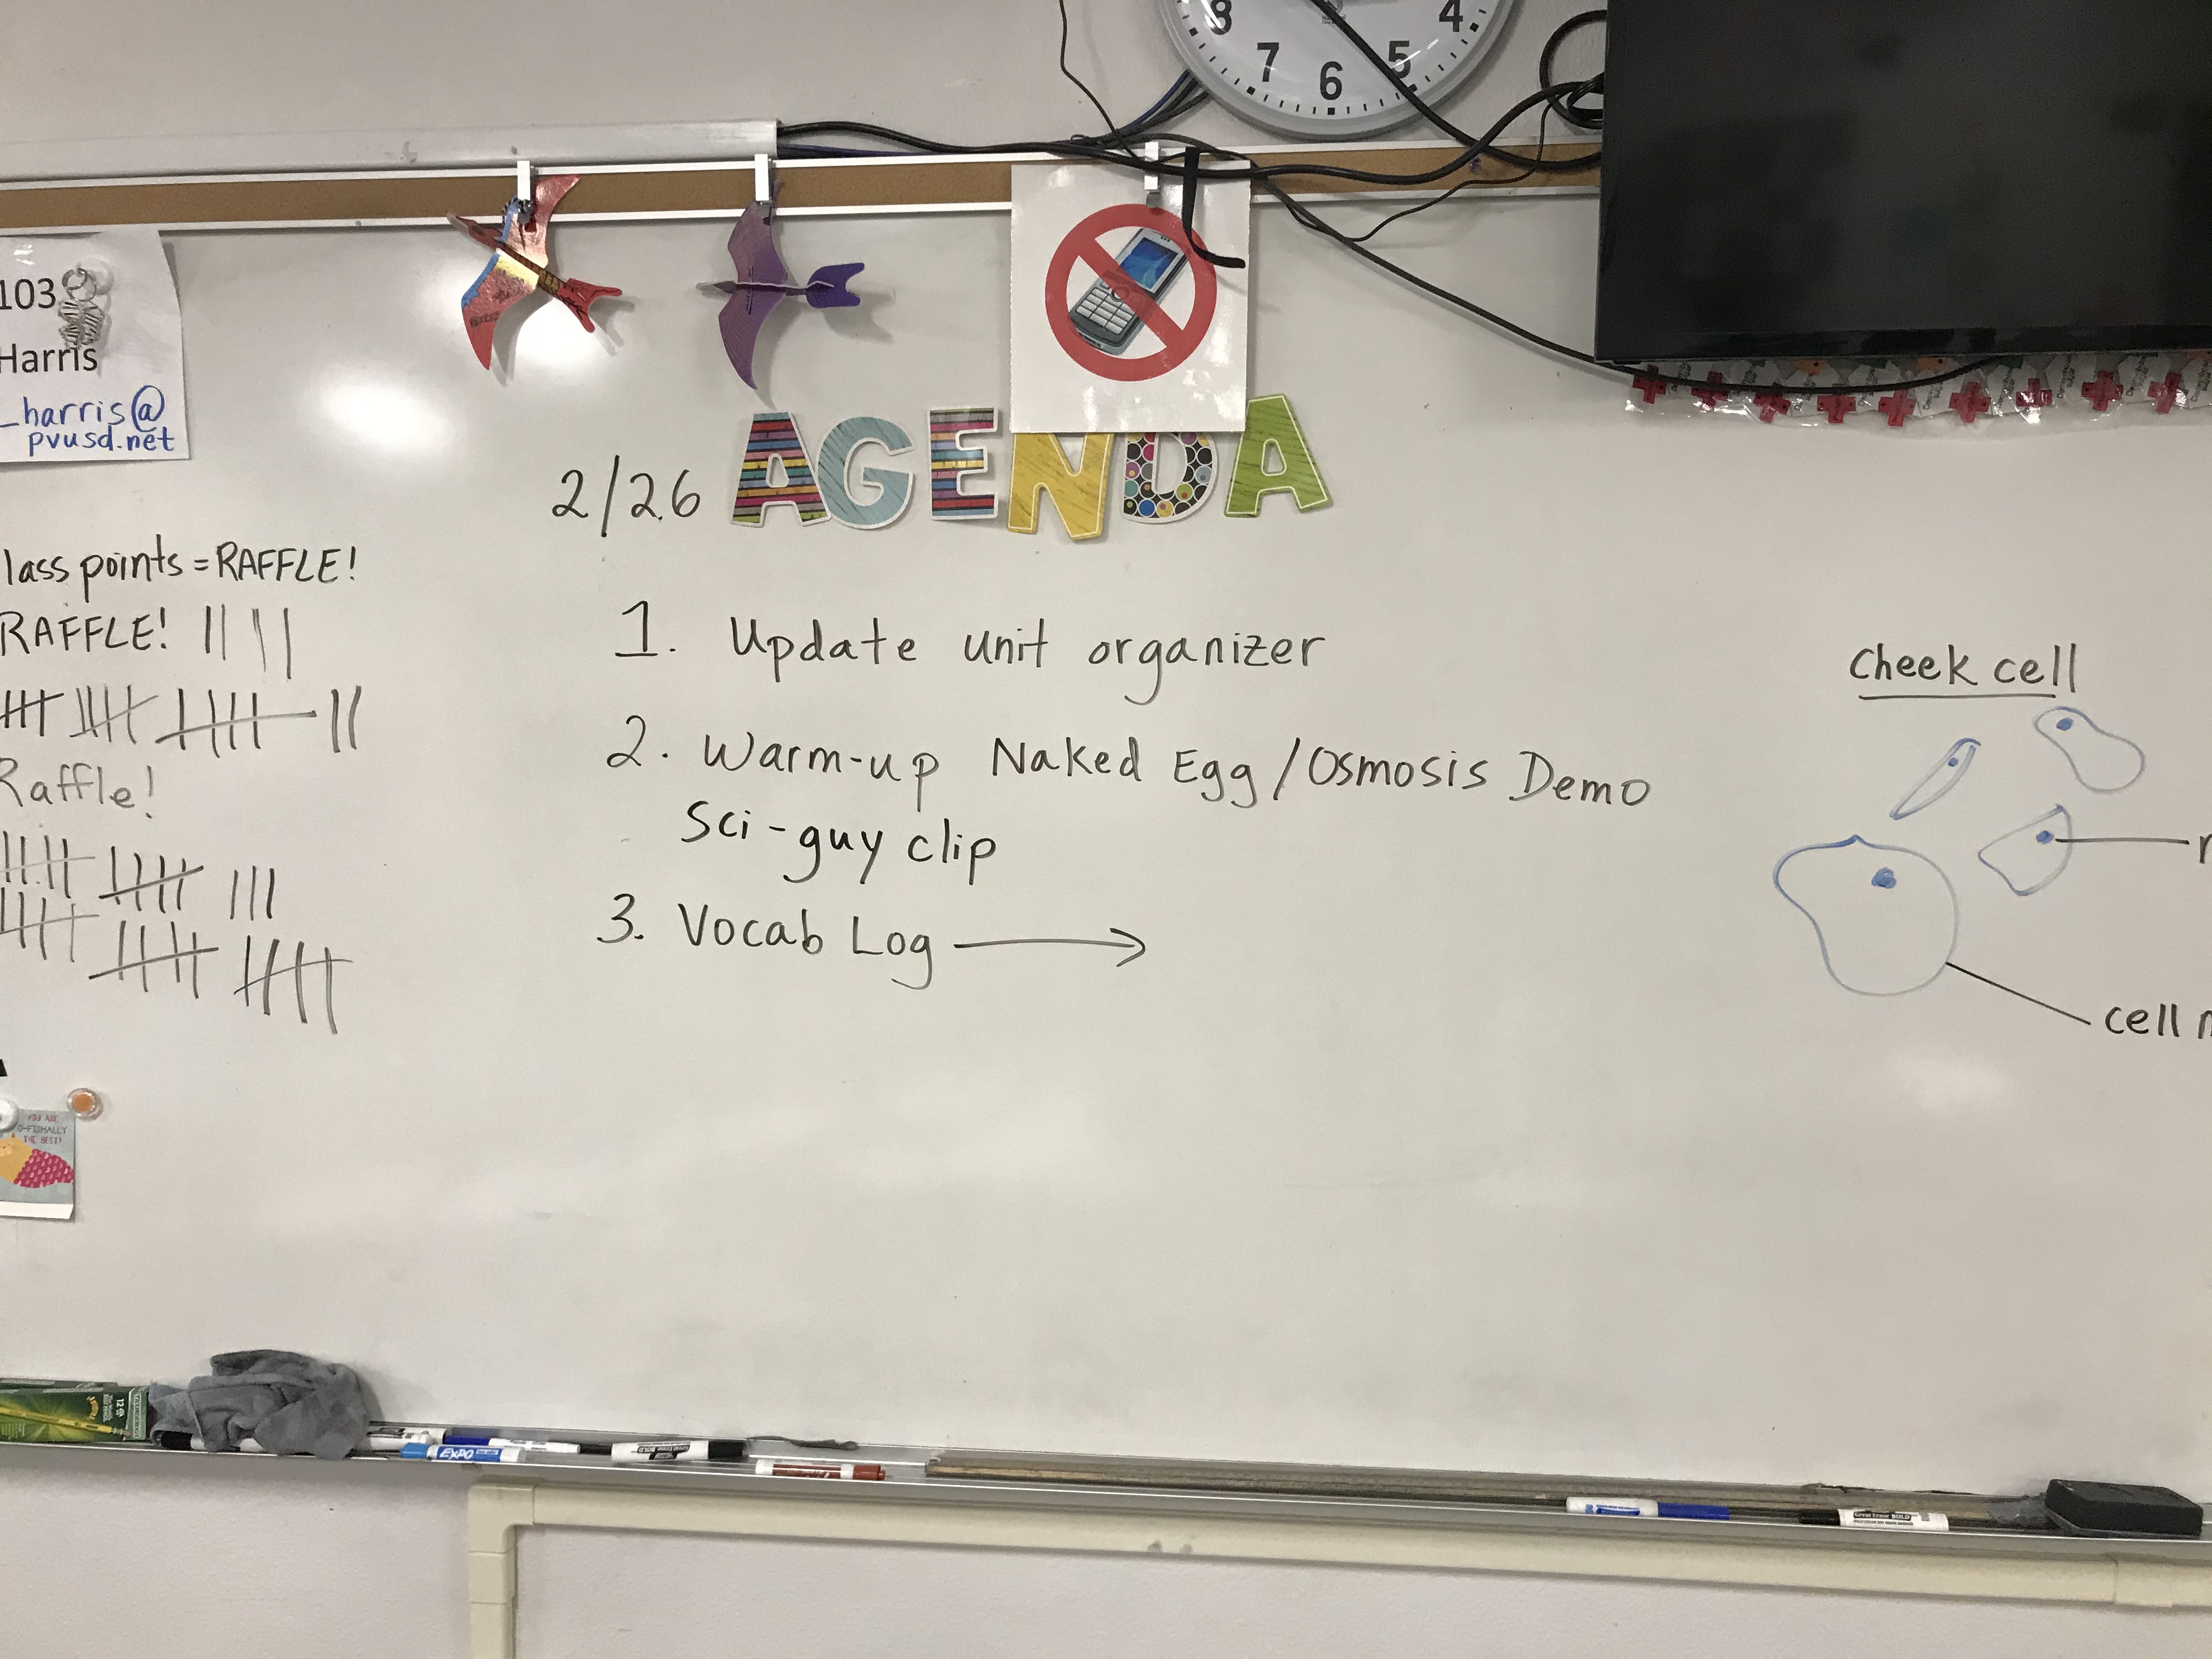 8 7 6 5 4
103
Harris
_harris@
pvusd.net
2/26 AGENDA
lass points = RAFFLE!
RAFFLE!
Raffle!
1. Update unit organizer
2. Warm-up Naked Egg/Osmosis Demo
Sci-guy clip
3. Vocab Log
Cheek cell
cell
YOU ARE
O-FISHALLY
THE BEST!
12
EXPO
Great Erase BOLD
Great Erase BOLD